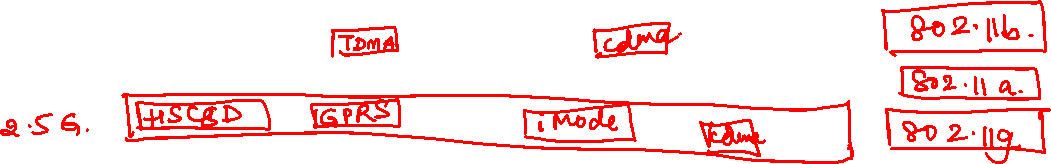 TDMA cdma 802.11b.
802.11a.
2.5G. HSCSD GPRS iMode cdma 802.11g